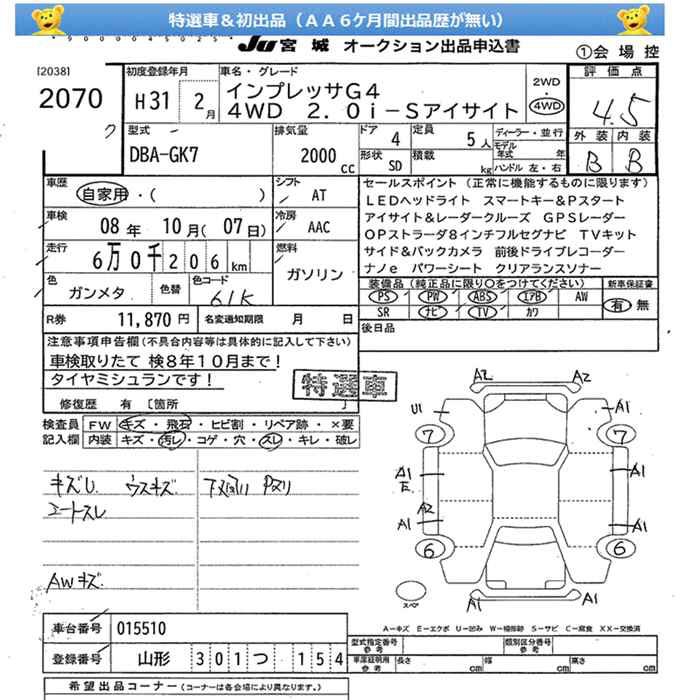 特選車＆初出品（ＡＡ６ケ月間出品歴が無い）
JU 宮城 オークション出品申込書
①会場控
[2038]
2070
初度登録年月
H31 2月
車名・グレード
インプレッサＧ４
４ＷＤ ２．０ｉ－Ｓアイサイト
2WD
・
4WD
評価点
4.5
外装 内装
B B
型式
DBA-GK7
排気量
2000 cc
ドア 4
定員 5人
形状 SD
積載 kg
ディーラー・並行
モデル年式 年
ハンドル 左・右
車歴
自家用・（ ）
シフト
AT
車検
08年 10月（07日）
冷房
AAC
走行
6万0千206km
燃料
ガソリン
色
ガンメタ
色替
色コード
61K
R券
11,870円
名変通知期限 月 日
セールスポイント（正常に機能するものに限ります）
ＬＥＤヘッドライト スマートキー＆Ｐスタート
アイサイト＆レーダークルーズ ＧＰＳレーダー
ＯＰストラーダ８インチフルセグナビ ＴＶキット
サイド＆バックカメラ 前後ドライブレコーダー
ナノｅ パワーシート クリアランスソナー
装備品（純正品に限り○をつけてください）
新車保証書
PS PW ABS エアB AW
SR ナビ TV カワ
有・無
後日品
注意事項申告欄（不具合内容等は具体的に記入して下さい）
車検取りたて 検８年１０月まで！
タイヤミシュランです！
特選車
修復歴 有 〔箇所 〕
検査員記入欄
FW キズ・飛石・ヒビ割・リペア跡・×要
内装 キズ・汚レ・コゲ・穴・スレ・キレ・破レ
キズU ウスキズ
シートスレ
AWキズ
A2 A2
U1 A1
7 7
A1 A1
E
A2
A1 A1
6 6
A1 A1
スペア
A－キズ E－エクボ U－凹み W－補修跡 S－サビ C－腐食 XX－交換済
車台番号 015510
登録番号 山形 301 つ 154
型式指定番号 参考
類別区分番号 参考
車庫証明用 参考 長さ cm 幅 cm 高さ cm
希望出品コーナー（コーナーは各会場により異なります。）